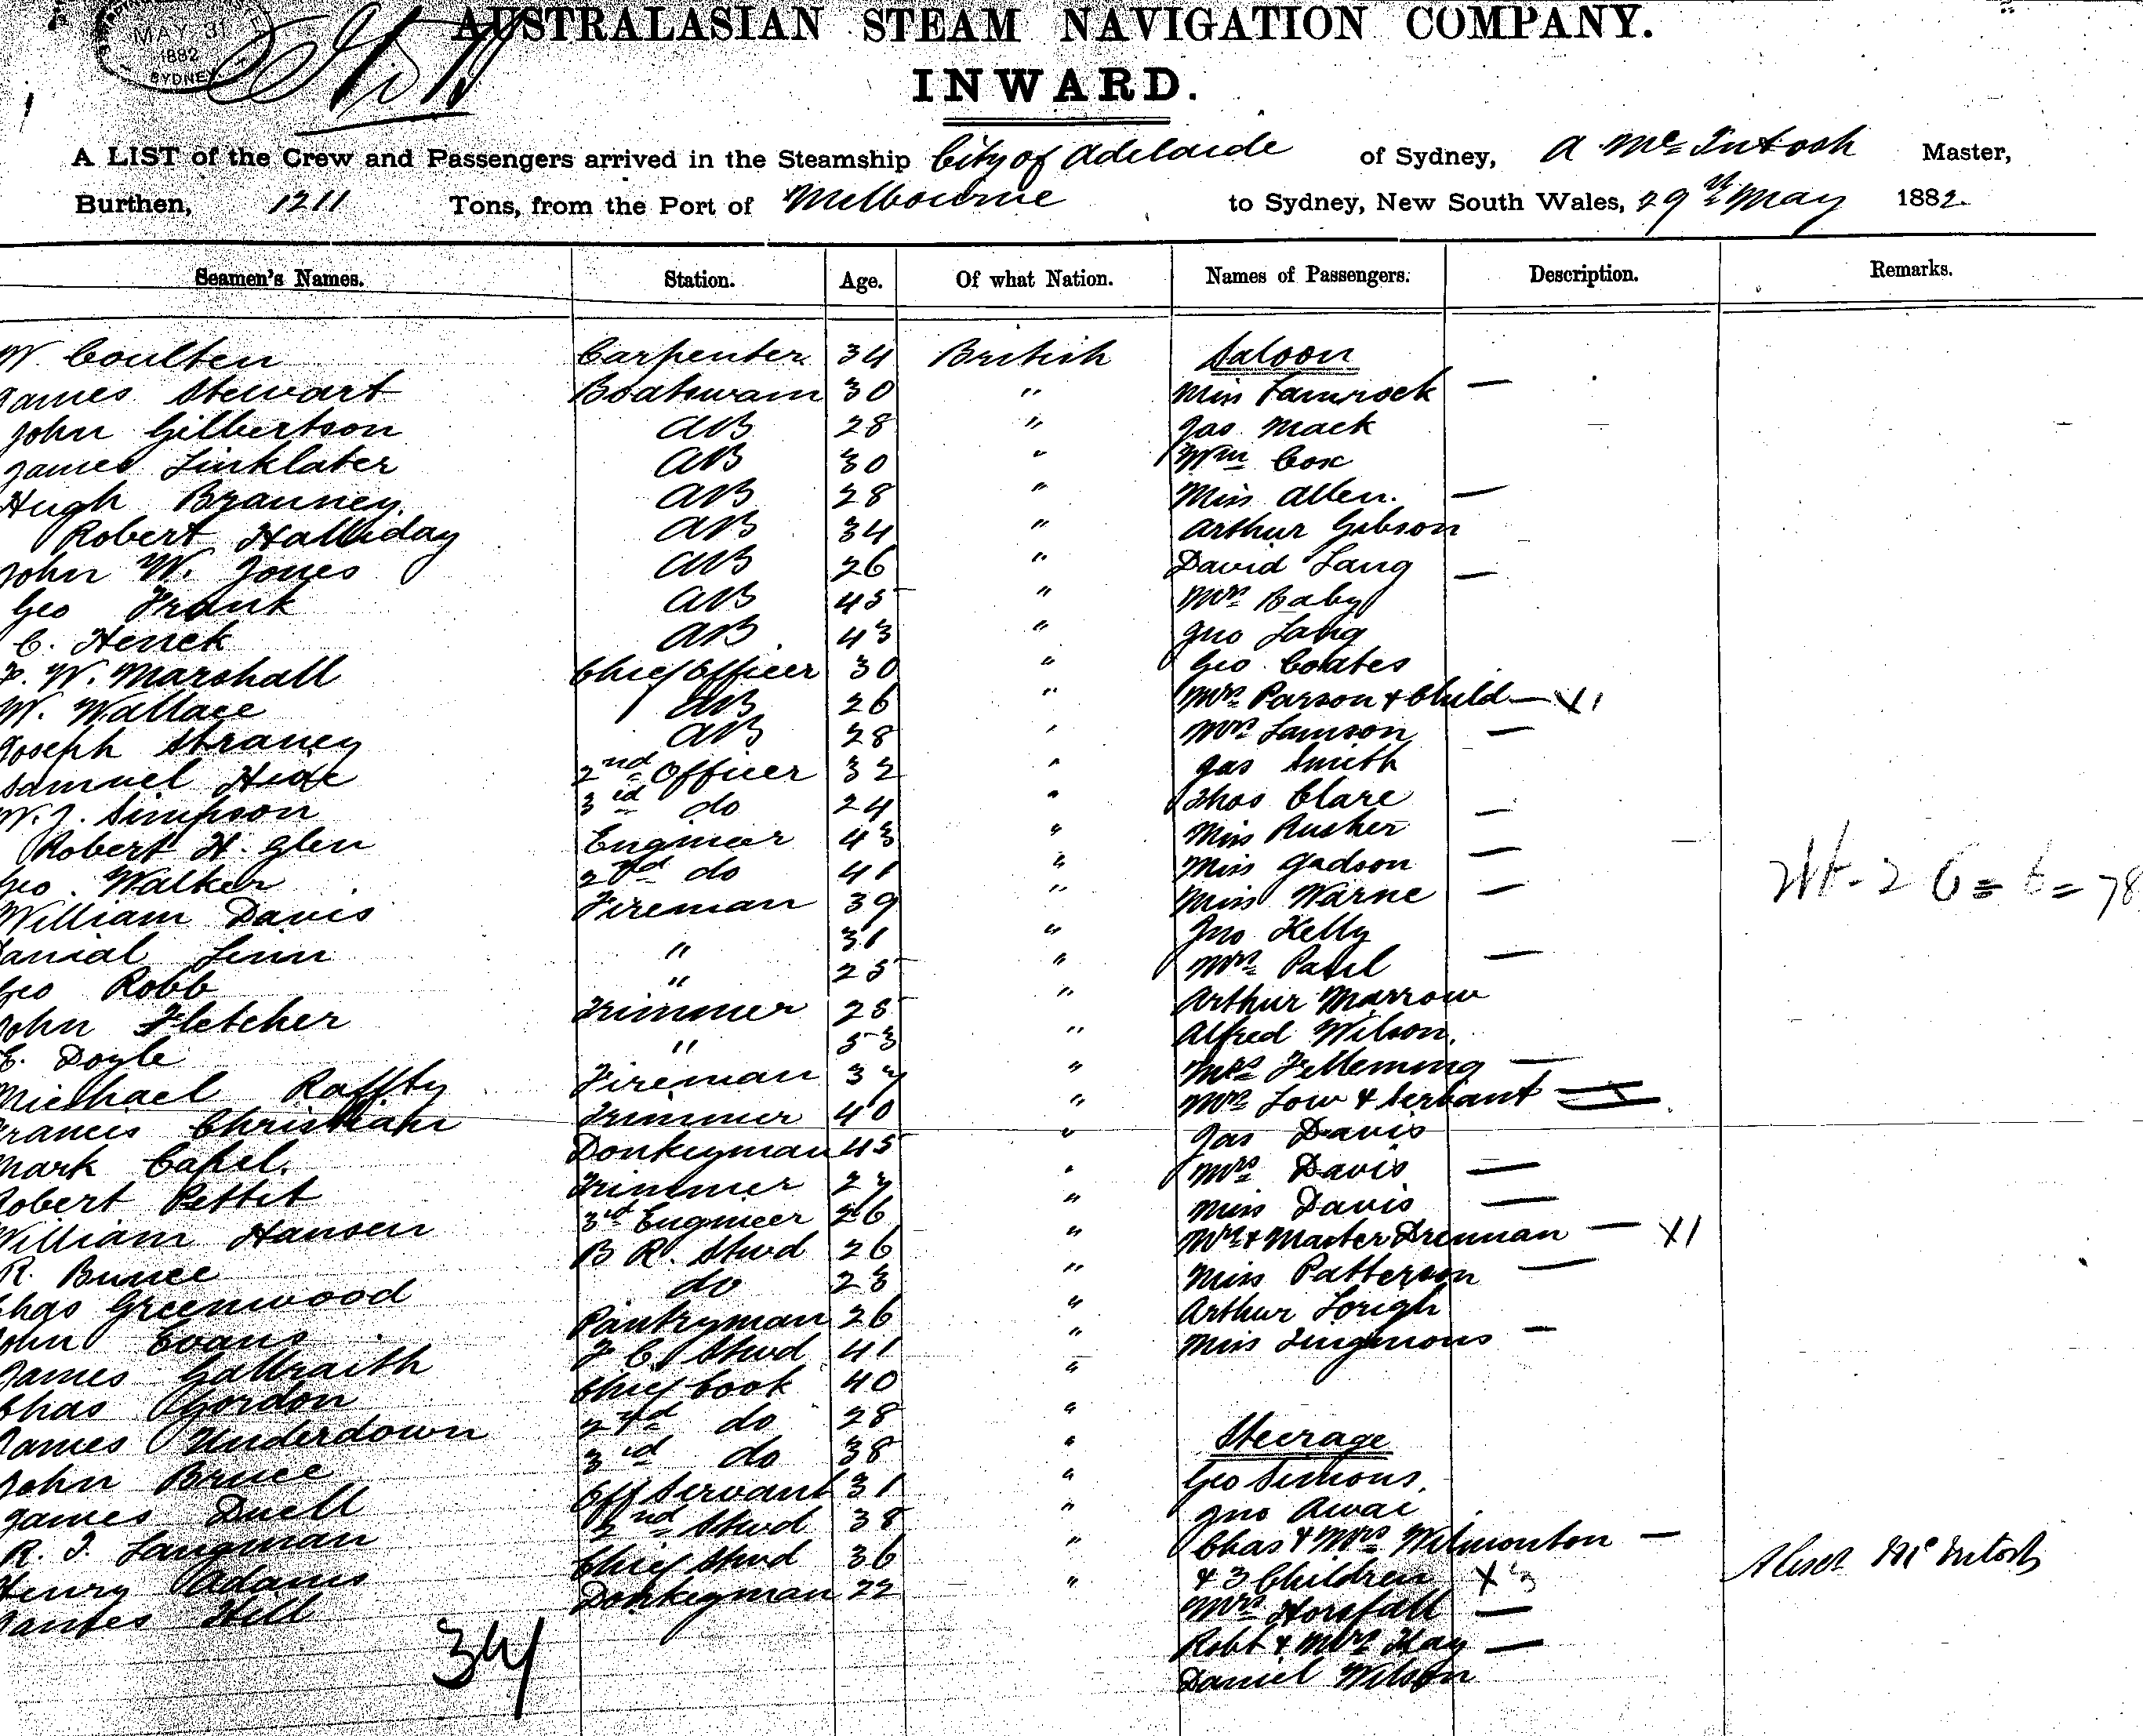 MAY 31
1882
SYDNEY
AUSTRALASIAN STEAM NAVIGATION COMPANY.
INWARD.
A LIST of the Crew and Passengers arrived in the Steamship City of Adelaide of Sydney, A McIntosh Master,
Burthen, 1211 Tons, from the Port of Melbourne to Sydney, New South Wales, 29th May 1882.
Seamen's Names. Station. Age. Of what Nation. Names of Passengers. Description. Remarks.
W. Coulten Carpenter 34 British Saloon
James Stewart Boatswain 30 " Miss —
John Gilbertson AB 28 " Jas Mack
James Linklater AB 30 " Wm Cox
Hugh Branney. AB 28 " Miss Allen. —
Robert Halliday AB 34 " Arthur Gibson
John W. Jones AB 26 " David Lang
Geo Frank AB 45 " Mrs Baby —
C. Herrek AB 43 " Jno Lang
F. W. Marshall Chief Officer 30 " Geo Coates
W. Wallace AB 26 " Mrs Parson & Child — X1
Joseph Straney AB 28 " Mrs Lamson —
Samuel Hide 2nd Officer 32 " Jas Smith
W. J. Simpson 3rd do 24 " Thos Clare
Robert H. Glen Engineer 43 " Miss Rusher —
Geo. Walker 2nd do 41 " Miss Gadson —
William Davis Fireman 39 " Miss Warne —
Danial Linn " 31 " Jno Kelly
Geo Robb " 25 " Mrs Paul —
John Fletcher Trimmer 25 " Arthur Marrow
E. Doyle " 53 " Alfred Wilson.
Michael Raffty Fireman 37 " Mrs Flemming —
Francis Christian Trimmer 40 " Mrs Low & Servant
Mark Capel. Donkeyman 45 " Jas Davis
Robert Pettit Trimmer 27 " Mrs Davis —
William Hansen 3rd Engineer 26 " Miss Davis —
R. Bunce B R. Stwd 26 " Mrs & Master Drennan — X1
Chas Greenwood do 23 " Miss Patterson —
John Evans Pantryman 26 " Arthur Lorigh
James Galbraith F C. Stwd 41 " Miss —
Chas Gordon Chief Cook 40 "
James Underdown 2nd do 28 "
John Bruce 3rd do 38 " Steerage
James Duell Off Servant 31 " Geo Simons.
R. J. Langman 2nd Stwd 38 " Jno Awai
Henry Adams Chief Stwd 36 " Chas & Mrs Wilmonton —
James Hill Donkeyman 22 " & 3 Children X 3
Mrs Horsfall —
Robt & Mrs Hay —
Daniel Wilson
34
McIntosh